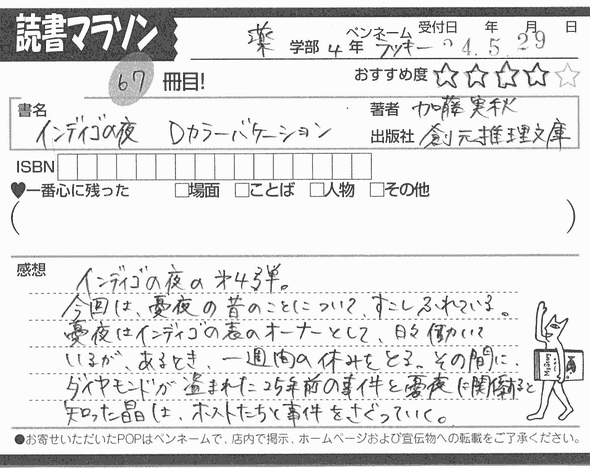 読書マラソン
薬 学部 4 年 ペンネーム ラッキー 受付日 年 月 日 24.5.29
67 冊目!
おすすめ度 ★★★★☆
書名 インディゴの夜 Dカラーバケーション
著者 加藤実秋
出版社 創元推理文庫
ISBN
♥一番心に残った □場面 □ことば □人物 □その他
( )
感想
インディゴの夜の第4弾。
今回は、憂夜の昔のことについて、すこしふれている。
憂夜はインディゴの表のオーナーとして、日々働いて
いるが、あるとき、一週間の休みをとる。その間に、
ダイヤモンドが盗まれた25年前の事件と憂夜に関係すると
知った晶は、ホストたちと事件をさぐっていく。
●お寄せいただいたPOPはペンネームで、店内で掲示、ホームページおよび宣伝物への転載をご了承ください。